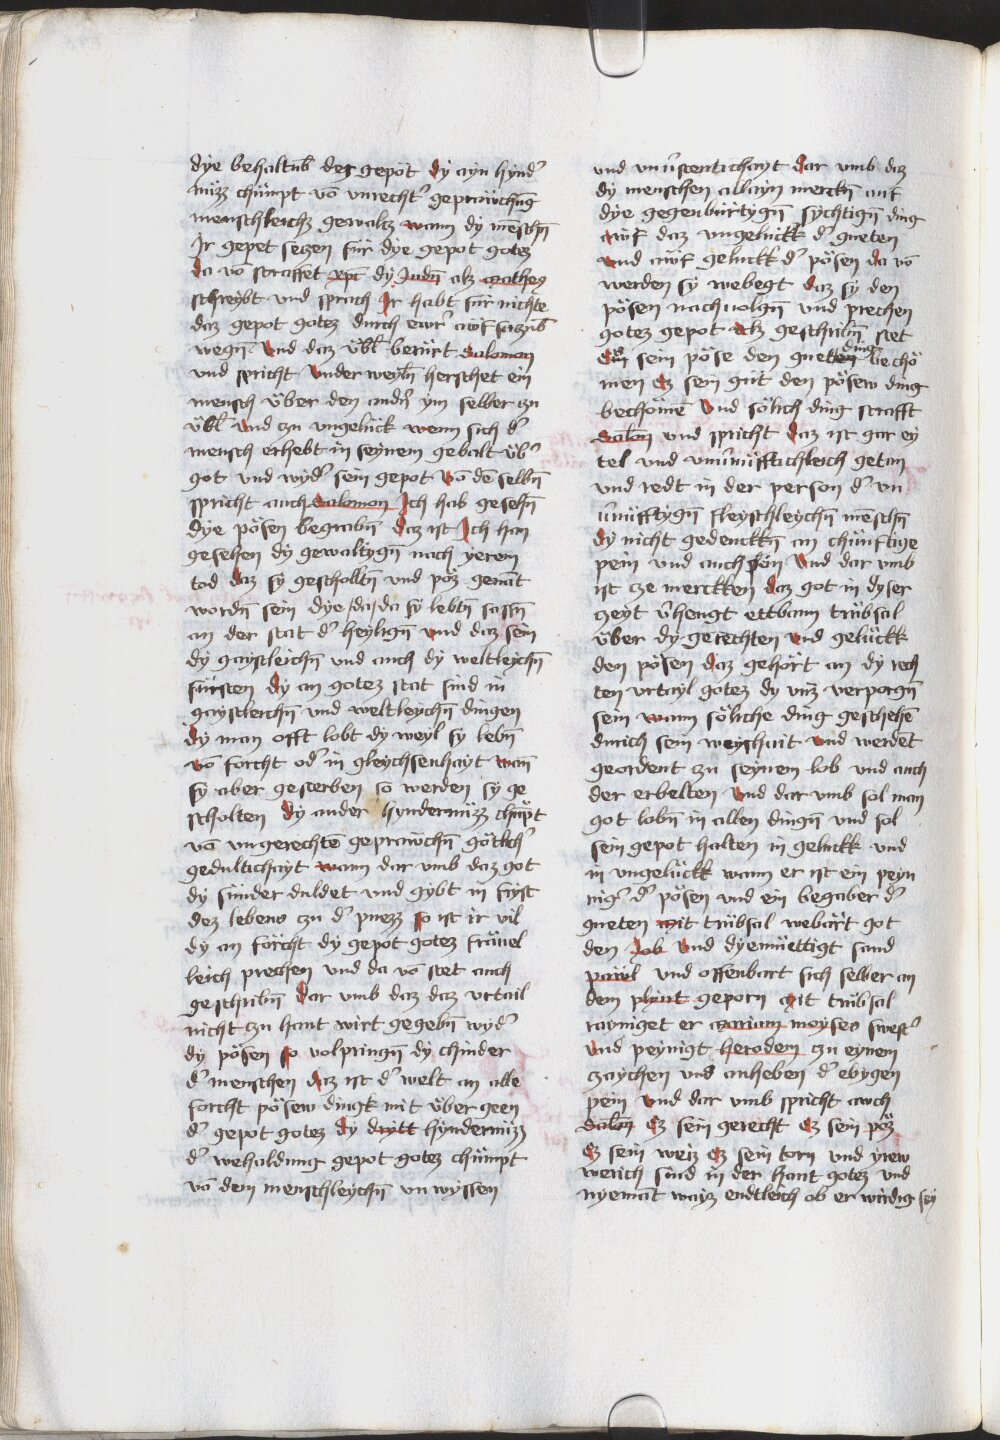 dye behaltnus̄ der gepot dy ayn hynd̛
nüzz chümpt vō vnrecht̛ geprawchūg
menschleichs gewalz wann dy mēschn̄
Jr gepet seczen für dye gepot gotez
da vō straffet xp̄c dy Judn̄ alz matheus
schreybt vnd sprach Jr habt für nichte
daz gepot gotez durch ewr̛ awf saczūg
wegn̄ Vnd daz v̈bl̄ berürt Salomon
vnd spricht Vnder weyln̄ herschet ein
mensch über den andn̄ ym selber czu
v̈bl̄ vnd czu vngelück wenn sich d̛
mensch erhebt in seynem gebalt üb̛
got vnd wyd̛ sein gepot Vō dē selbn̄
spricht auch Salomon Ich hab gesehn̄
dye pösen begrabn̄ daz ist Ich han
gesehen dy gewaltygn̄ nach yerem
tod daz sy gescholtn̄ vnd pöz genāt
wordn̄ sein dye da da sy lebtn̄ sassn̄
an der stat d̛ heylign̄ vnd daz sein
dy gaystleichn̄ vnd auch dy weltleychn̄
fürsten dy an gotez stat sind in
gaystleichn̄ vnd weltleychn̄ dingen
dy man offt lobt dy weyl sy lebn̄
vō forcht od̛ in gleychsenhayt wan̄
sy aber gesterben so werden sy ge
scholten dy ander hyndernüzz chüpt
vō vngerechtē geprawchn̄ götlich̛
gedultichayt wann dar vmb daz got
dy sünder duldet vnd gybt in fryst
dez lebens czu d̛ puezz so ist ir vil
dy an förcht dy gepot gotez fräuel
leich prechen vnd da vō stet auch
geschribn̄ Dar vmb daz daz vrtail
nicht zu hant wirt gegebn̄ wyd̛
dy pösen so volpringn̄ dy chinder
d̛ menschen daz ist d̛ welt an alle
forcht pösew dingk mit über geen
d̛ gepot gotez dy drytt hyndernüzz
d̛ wehaldung gepot gotez chümpt
vō dem menschleychn̄ vnwyssen
vnd vnu̇stentichayt dar vmb daz
dy menschen allayn merckn̄ auf
dye gegenbürtygn̄ sychtign̄ ding
awf daz vngelückk d̛ gueten
vnd awf geluckk d̛ pösen da vō
werden sy webegt daz sy den
pösen nachuolgn̄ vnd prechen
gotez gepot alz geschribn̄ stet
Eß sein pöse den gueten ding bechö
men Ez sein güt den pösew ding
bechömē Vnd sölich ding strafft
Salōn vnd spricht daz ist gar ey
tel vnd vnu̇nüfftichleich getan
vnd redt in der person d̛ vn
u̇nüfftygn̄ fleyschleychn̄ mēschn̄
dy nicht gedenckn̄ an chünftige
pein vnd auch lön Vnd dar vmb
ist cze merckken daz got in dyser
zeyt v̇hengt ettbann trübsal
über dy gerechten vnd gelückk
den pösen daz gehört an dy rech
ten vrtayl gotez dy vnz verporgn̄
sein wann söliche ding geschehē
durich sein weyshait vnd werdēt
geordent zu seynem lob vnd auch
der erbelten Vnd dar vmb sol man
got lobn̄ in allen dingn̄ vnd sol
sein gepot halten in geluckk vnd
in vngelückk wann er ist ein peyn
nig̛ d̛ pösen vnd ein begaber d̛
gueten mit trübsal webärt got
den Job vnd dyemüettigt sand
pawl vnd offenbart sich selber an
dem plynt geporn mit trübsal
rayniget er mariam moyses swest̛
Vnd peynigt herodem zu eynem
zaychen vnd anheben d̛ ebygen
pein Vnd dar vmb spricht auch
Salōn Ez sein gerecht Ez sein pöz
Ez sein weiz Ez sein torn vnd yrew
werich sind in der hant gotez vnd
nyemāt wayz endtleich ob er wirdig sey